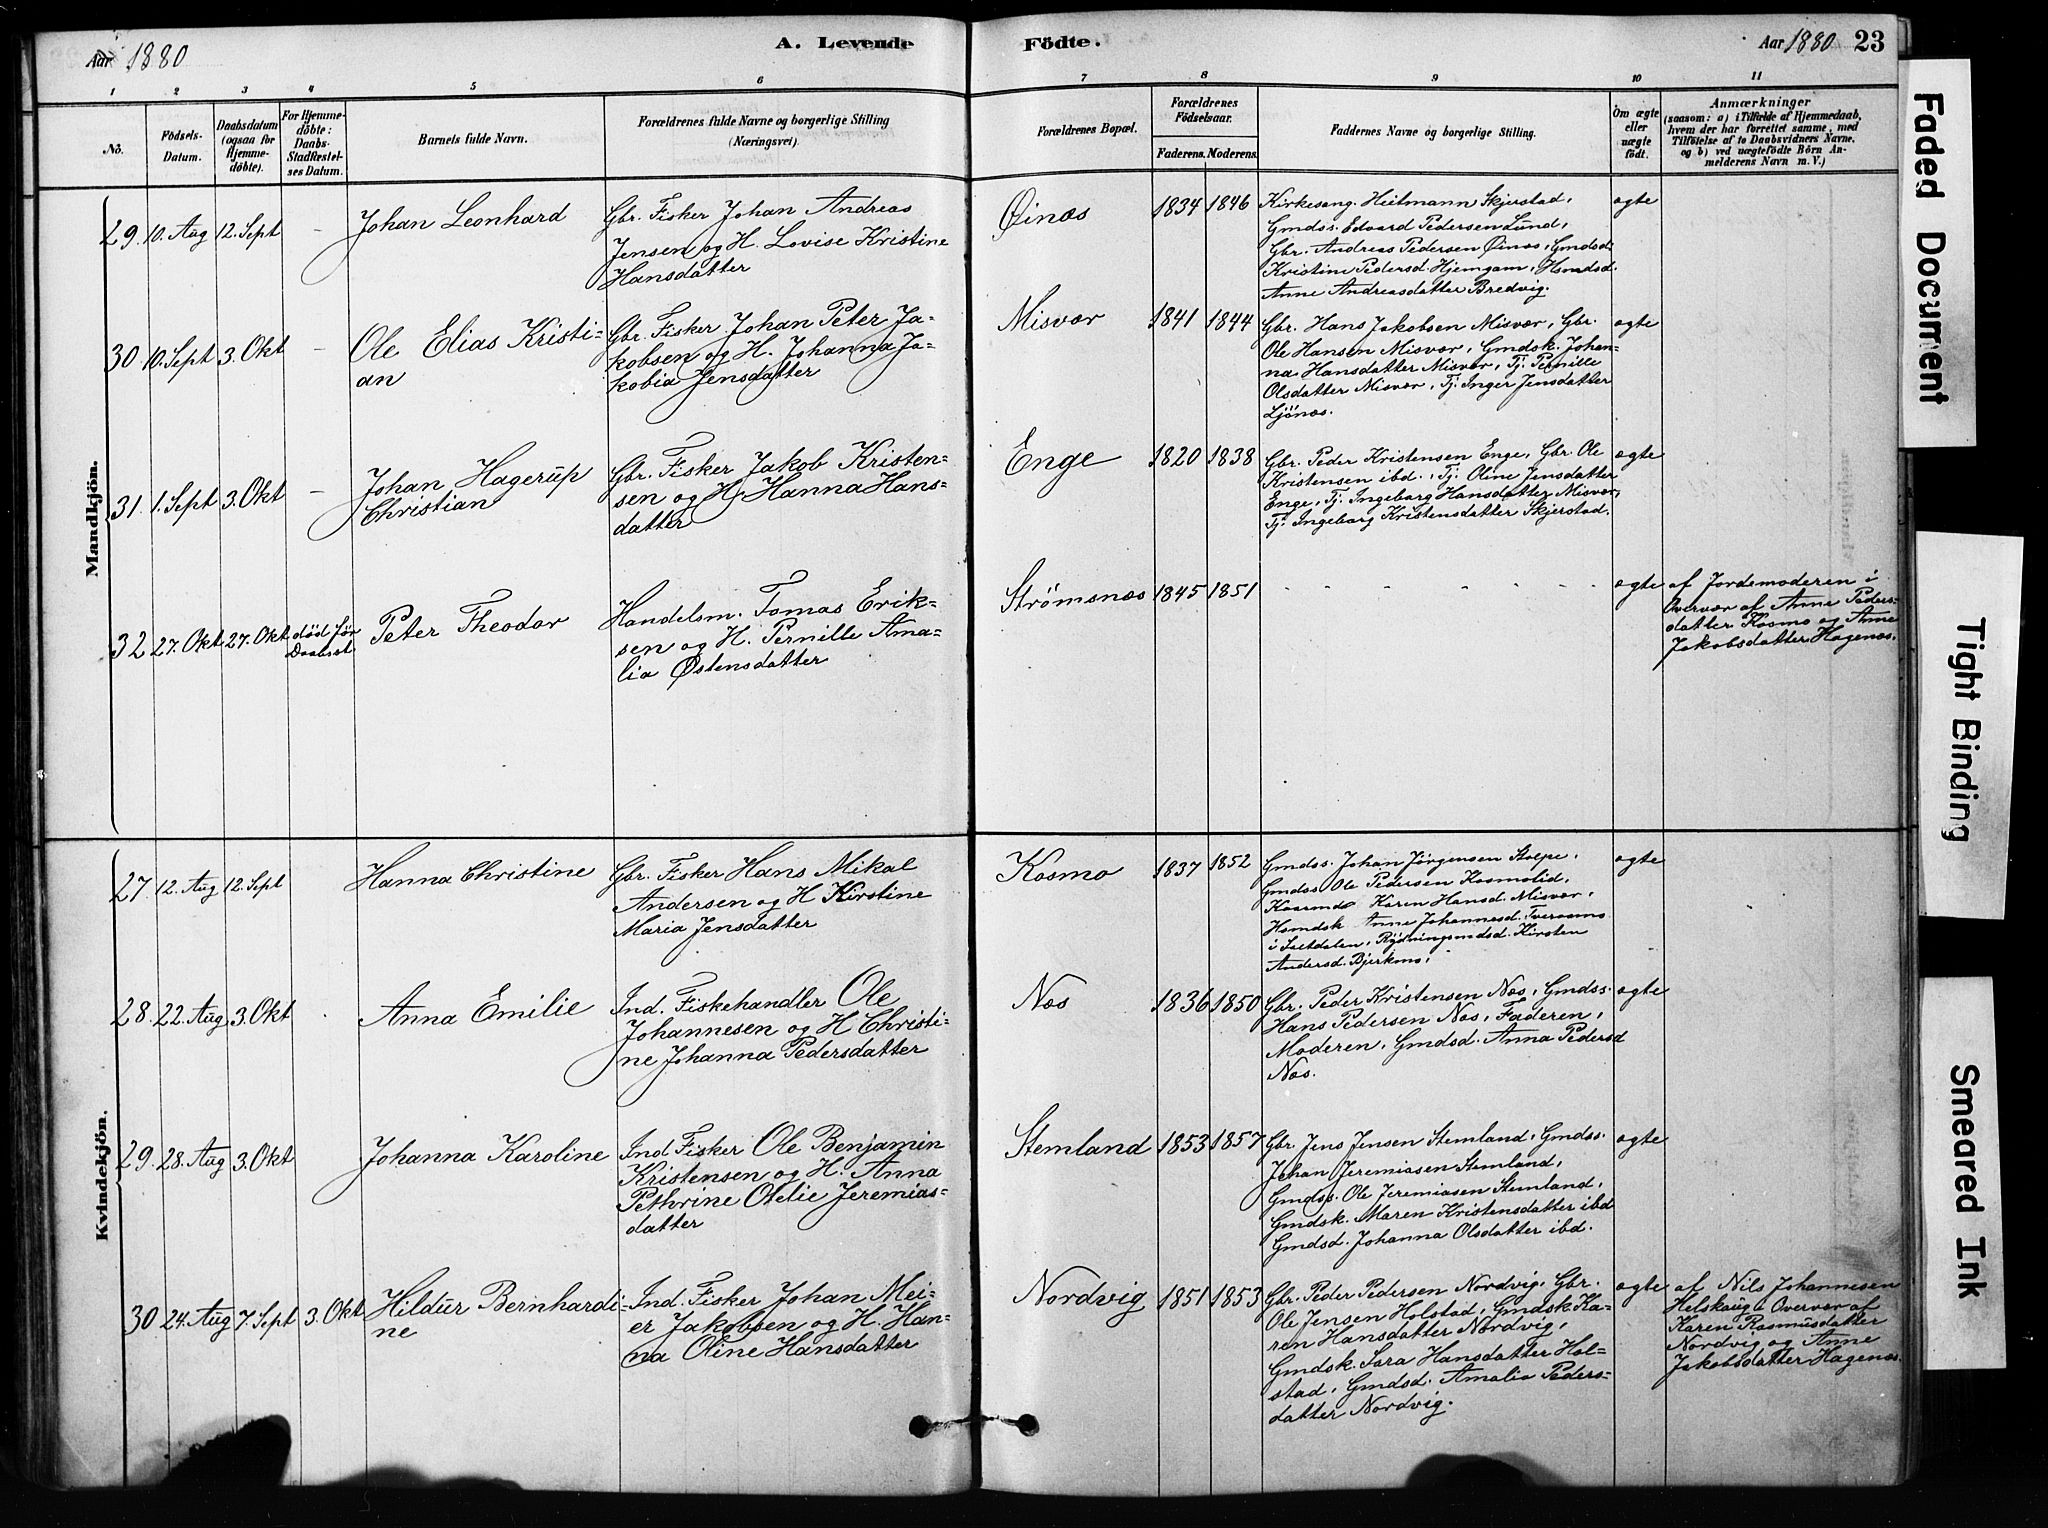 Aar 1880
A. Levende
Födte.
Aar 1880 23
1 2 3 4 5 6 7 8 9 10 11
No.
Födsels-
Datum.
Daabsdatum
(ogsaa for
Hjemme-
döbte).
For Hjemme-
döbte:
Daabs-
Stadfæstel-
ses Datum.
Barnets fulde Navn.
Forældrenes fulde Navne og borgerlige Stilling
(Næringsvei).
Forældrenes Bopæl.
Forældrenes
Födselsaar.
Faderens. Moderens.
Faddernes Navne og borgerlige Stilling.
Om ægte
eller
uægte
født.
Anmærkninger
(saasom: a) i Tilfælde af Hjemmedaab,
hvem der har forrettet samme, med
Tilföielse af to Daabsvidners Navne,
og b) ved uægtefödte Börn An-
melderens Navn m. V.)
Mandkjön.
29. 10. Aug 12. Sept -
Johan Leonhard
Gbr. Fisker Johan Andreas
Jensen og H. Lovise Kristine
Hansdatter
Øinæs
1834 1846
Kirkesang. Heitmann Skjerstad,
Gmdss. Edvard Pedersen Lund,
Gbr. Andreas Pedersen Øinæs, Gmdsd.
Kristine Pedersd. Hjemgam, Hsmdsd.
Anne Andreasdatter Bredvig.
ægte
30 10. Sept 3. Okt -
Ole Elias Kristi-
an
Gbr. Fisker Johan Peter Ja-
kobsen og H. Johanna Ja-
kobia Jensdatter
Misvær
1841 1844
Gbr. Hans Jakobsen Misvær, Gbr.
Ole Hansen Misvær, Gmdsk. Johan-
na Hansdatter Misvær, Tj. Pernille
Olsdatter Misvær, Tj. Inger Jensdatter
Ljönæs.
ægte
31. 1. Sept 3. Okt -
Johan Hagerup
Christian
Gbr. Fisker Jakob Kristen-
sen og H. Hanna Hans-
datter
Enge
1820 1838
Gbr. Peder Kristensen Enge, Gbr. Ole
Kristensen ibd., Tj. Oline Jensdatter
Enge, Tj. Ingeborg Hansdatter Misvær,
Tj. Ingeborg Kristensdatter Skjerstad.
ægte
32 27. Okt 27. Okt død før
Daabsst
Peter Theodor
Handelsm. Tomas Erik-
sen og H. Pernille Ama-
lia Østensdatter
Strømsnæs
1845 1851
- - - - - - -
ægte
af Jordemoderen i
Overvær af Anne Peders-
datter Kosmo og Anne
Jakobsdatter Hagenæs.
Kvindekjön.
27. 12. Aug 12. Sept
Hanna Christine
Gbr. Fisker Hans Mikal
Andersen og H Kirstine
Maria Jensdatter
Kosmo
1837 1852
Gmdss. Johan Jørgensen Stolpe,
Gmdss Ole Pedersen Kosmolid,
Karen Hansd. Misvær,
Hsmdsk Anne Johannesd. Tveraamo
i Saltdalen, Rydningsmdsd. Kirsten
Andersd. Bjerkmo,
ægte
28. 22. Aug 3. Okt .
Anna Emilie
Ind. Fiskehandler Ole
Johannesen og H Christi-
ne Johanna Pedersdatter
Næs
1836 1850
Gbr. Peder Kristensen Næs, Gmdss.
Hans Pedersen Næs, Faderen,
Moderen, Gmdsd. Anna Pedersd
Næs.
ægte
29. 28. Aug 3. Okt
Johanna Karoline
Ind Fisker Ole Benjamin
Kristensen og H. Anna
Pethrine Otelie Jeremias-
datter
Stemland
1853 1857
Gbr Jens Jensen Stemland, Gmdss.
Johan Jeremiasen Stemland,
Gmdss. Ole Jeremiasen Stemland,
Gmdsk. Maren Kristensdatter ibd
Gmdsd. Johanna Olsdatter ibd.
ægte
30 24. Aug 7. Sept 3. Okt
Hildur Bernhardi-
ne
Ind. Fisker Johan Mei-
er Jakobsen og H. Han-
na Oline Hansdatter
Nordvig
1851 1853
Gbr. Peder Pedersen Nordvig, Gbr.
Ole Jensen Holstad, Gmdsk Ka-
ren Hansdatter Nordvig,
Gmdsk. Sara Hansdatter Hol-
stad, Gmdsd. Amalia Peders-
datter Nordvig.
ægte
af Nils Johannesen
Helskaug i Overvær af
Karen Rasmusdatter
Nordvig og Anne
Jakobsdatter Hagenæs.
Faded Document
Tight Binding
Smeared Ink